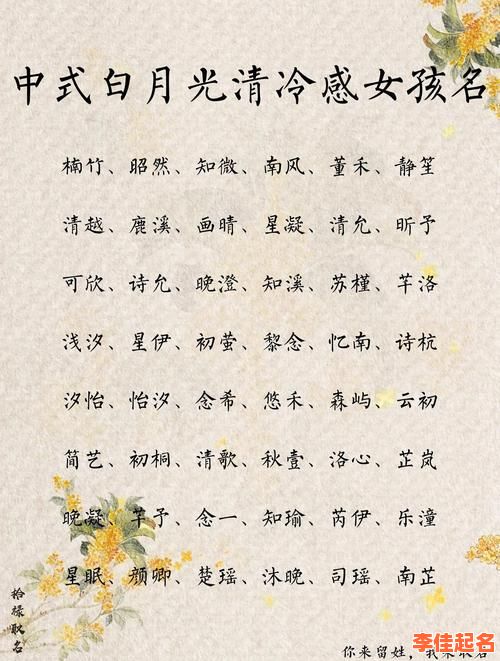 中式白月光清冷感女孩名
楠竹、昭然、知微、南风、董禾、静笙
清越、鹿溪、画晴、星凝、清允、昕予
可欣、诗允、晚澄、知溪、苏槿、芊洛
浅汐、星伊、初萤、黎念、忆南、诗杭
汐怡、怡汐、念希、悠禾、森屿、云初
简艺、初桐、清歌、秋壹、洛心、芷岚
晚凝、芊予、念一、知瑜、芮伊、乐潼
星眠、颜卿、楚瑶、沐晚、司瑶、南芷
拾禄取名
李佳起名
你来留姓，我来取名